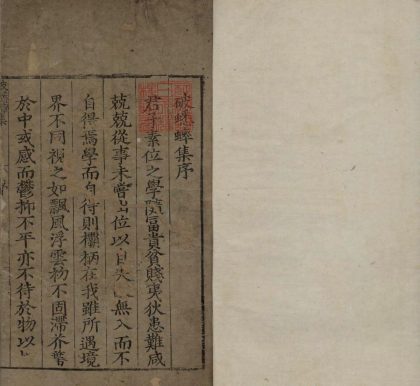 破集序
君子素位之學隨富貴貧賤夷狄患難咸
兢兢從事未嘗出位以自失無入而不
自得焉學而自得則欛柄在我雖所遇境
界不同視之如飄風浮雲物不固滯芥
於中或感而鬱抑不平亦不待於物以